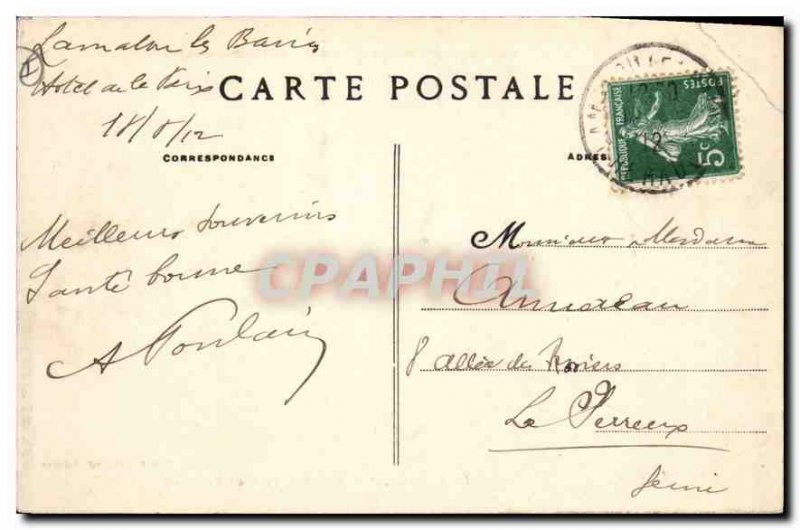 Lamalou les Bains
Hotel de la Paix
18/8/12
CARTE POSTALE
CORRESPONDANCE
ADRES
RÉPUBLIQUE FRANÇAISE
POSTES
5c
12
Meilleurs souvenirs
Santé bonne
A Poulain
CPAPHIL
Monsieur Madame
8 allée des
Le Perreux
Seine